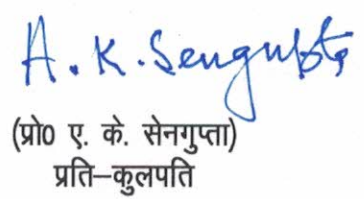 A. K. Sengupta
(प्रो0 ए. के. सेनगुप्ता)
प्रति–कुलपति